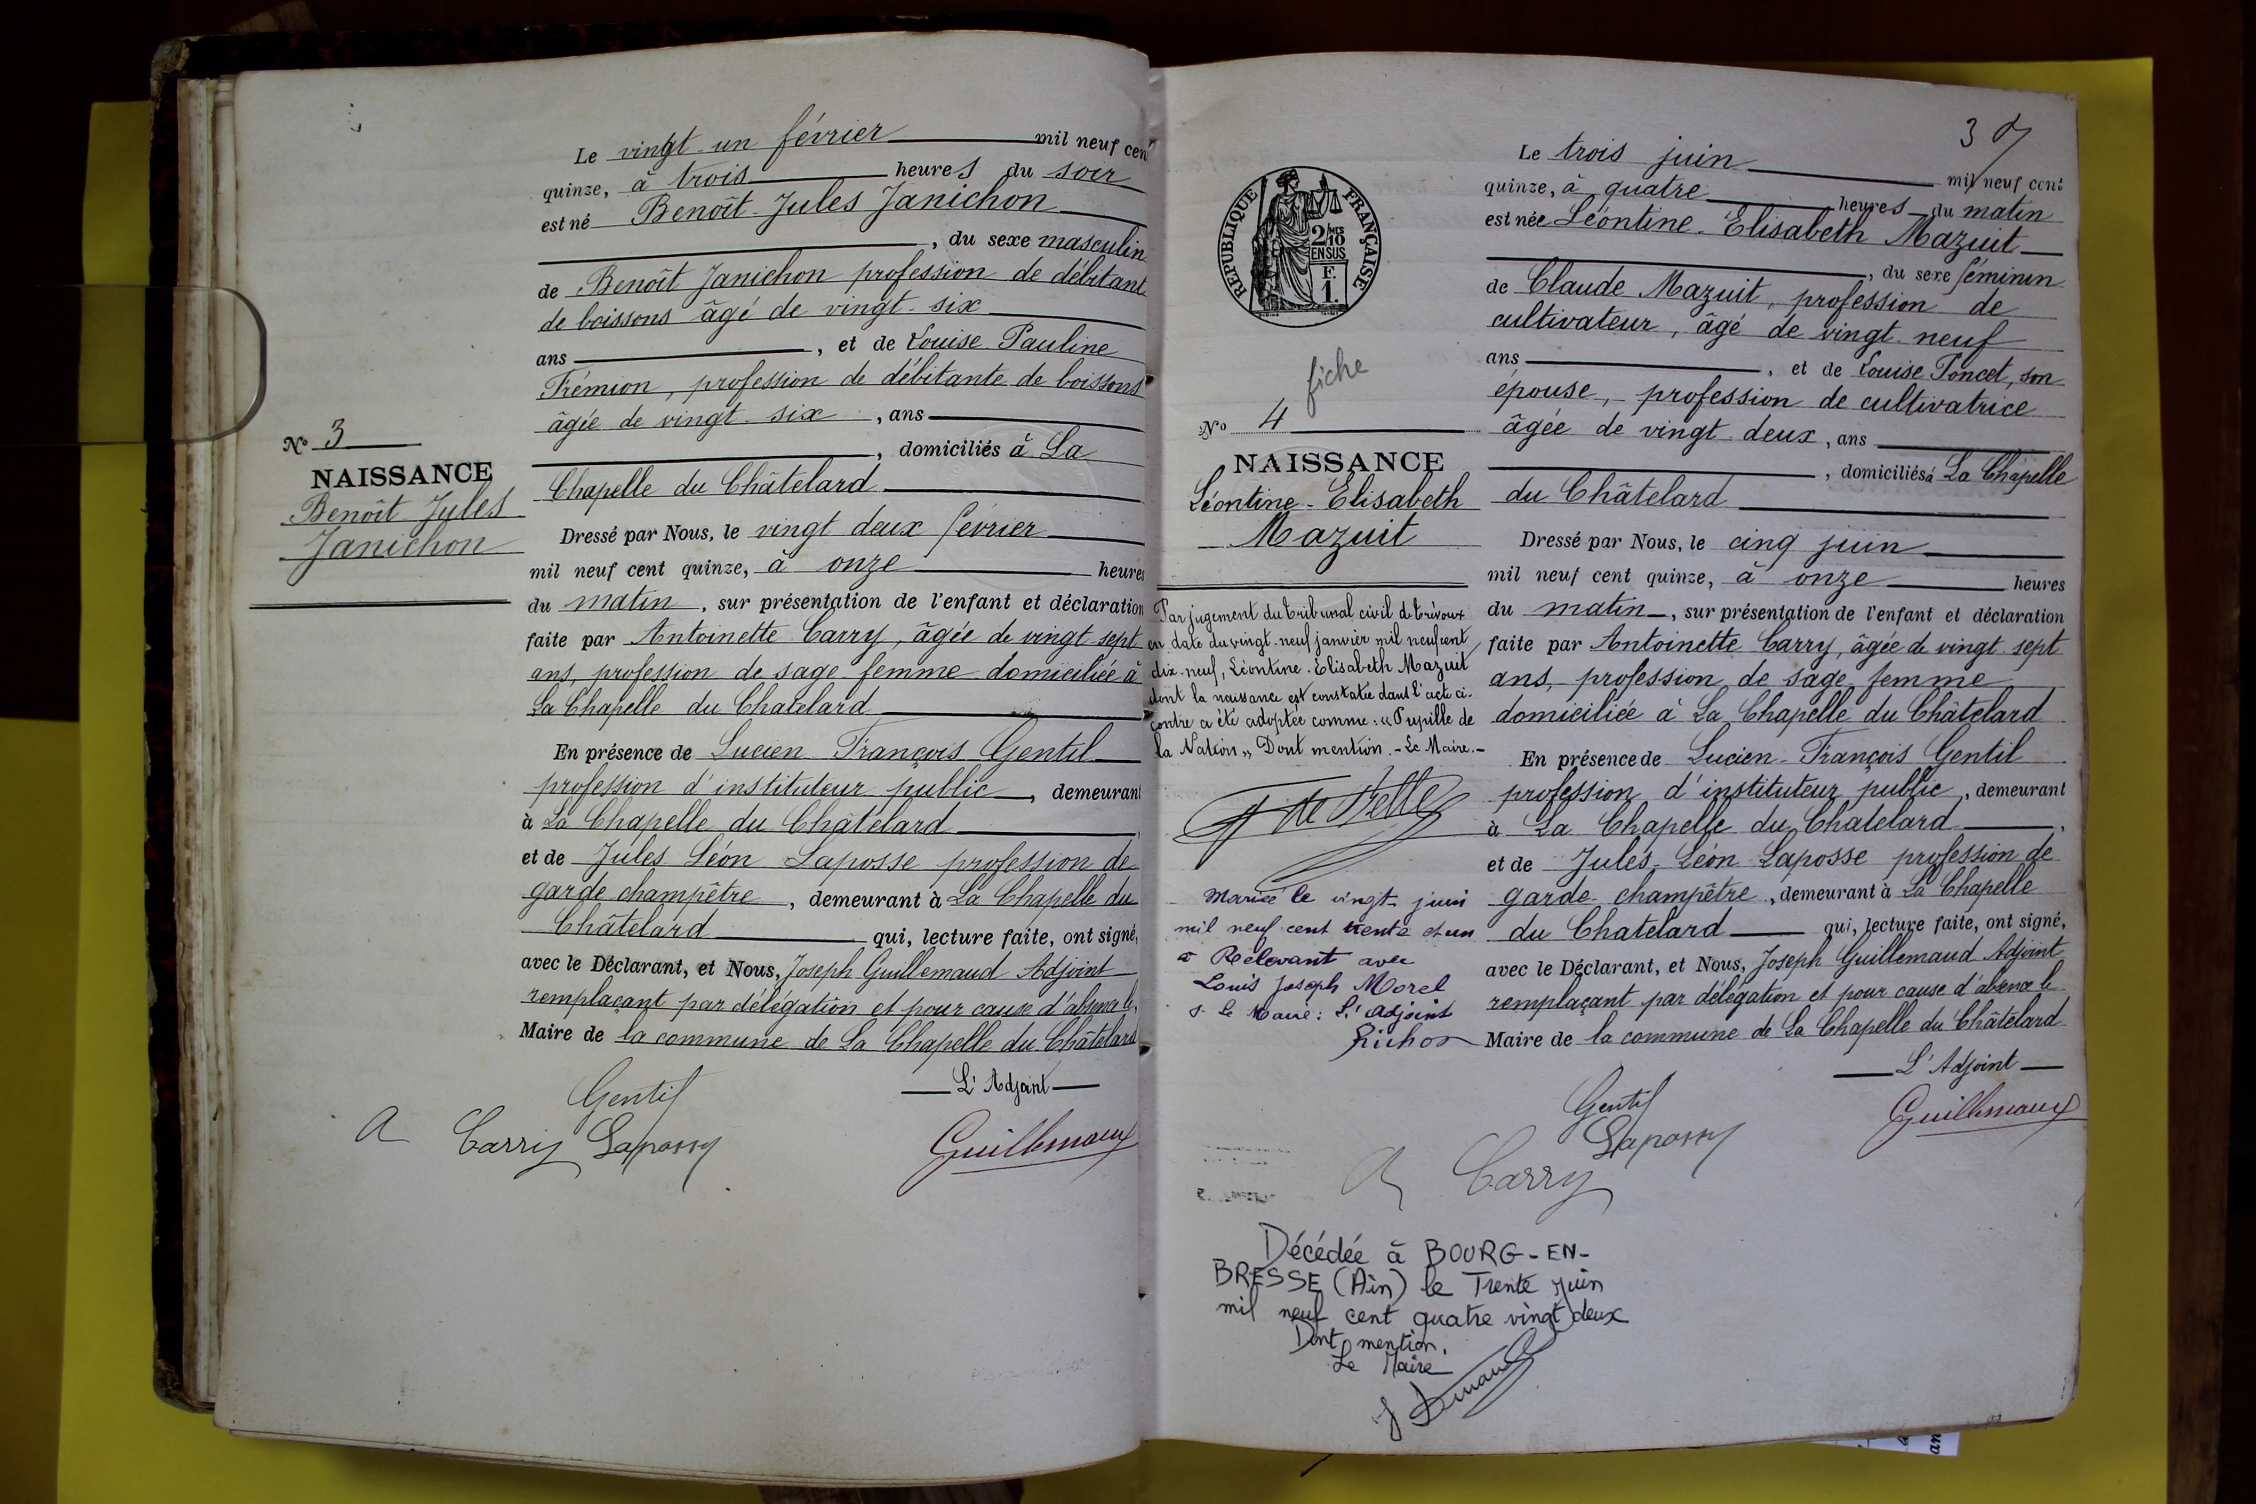 Le vingt-un février mil neuf cen
quinze, à trois heures du soir
est né Benoît Jules Janichon
, du sexe masculin
de Benoît Janichon profession de débitant
de boissons âgé de vingt-six
ans , et de Louise Pauline
Trémion, profession de débitante de boissons
âgée de vingt-six , ans
, domiciliés à La
Chapelle du Châtelard
No 3
NAISSANCE
Benoît Jules
Janichon
Dressé par Nous, le vingt deux février
mil neuf cent quinze, à onze heures
du matin , sur présentation de l'enfant et déclaration
faite par Antoinette Carry, âgée de vingt sept
ans, profession de sage-femme domiciliée à
La Chapelle du Chatelard
En présence de Lucien François Gentil
profession d'instituteur public , demeurant
à La Chapelle du Châtelard
et de Jules Léon Laposse profession de
garde champêtre , demeurant à La Chapelle du
Châtelard qui, lecture faite, ont signé,
avec le Déclarant, et Nous, Joseph Guillemaud Adjoint
remplaçant par délégation et pour cause d'absence le
Maire de la commune de La Chapelle du Châtelard
L'Adjoint
Gentil
A Carry Laposse
Guillemaud
3
Le trois juin mil neuf cent
quinze, à quatre heures du matin
est née Léontine-Elisabeth Mazuit
, du sexe féminin
de Claude Mazuit, profession de
cultivateur, âgé de vingt-neuf
ans , et de Louise Poncet, son
épouse, profession de cultivatrice
âgée de vingt-deux , ans
, domiciliés à La Chapelle
du Châtelard
RÉPUBLIQUE FRANÇAISE
2/10 MES
EN SUS
F.
1.
fiche
No 4
NAISSANCE
Léontine-Elisabeth
Mazuit
Par jugement du tribunal civil de Trévoux
en date du vingt-neuf janvier mil neuf cent
dix-neuf, Léontine-Elisabeth Mazuit
dont la naissance est constatée dans l'acte ci-
contre a été adoptée comme: "Pupille de
la Nation" Dont mention.- Le Maire.-
Mariée le vingt juin
mil neuf cent trente et un
à Relevant avec
Louis Joseph Morel
Le Maire: L'adjoint
Richon
Dressé par Nous, le cinq juin
mil neuf cent quinze, à onze heures
du matin , sur présentation de l'enfant et déclaration
faite par Antoinette Carry, âgée de vingt-sept
ans, profession de sage-femme
domiciliée à La Chapelle du Châtelard
En présence de Lucien-François Gentil
profession d'instituteur public , demeurant
à La Chapelle du Chatelard ,
et de Jules-Léon Laposse profession de
garde-champêtre , demeurant à La Chapelle
du Chatelard qui, lecture faite, ont signé,
avec le Déclarant, et Nous, Joseph Guillemaud Adjoint
remplaçant par délégation et pour cause d'absence le
Maire de la commune de La Chapelle du Châtelard
L'Adjoint
Gentil
Laposse
Guillemaud
A Carry
Décédée à BOURG-EN-
BRESSE (Ain) le Trente Juin
mil neuf cent quatre vingt deux
Dont mention.
Le Maire